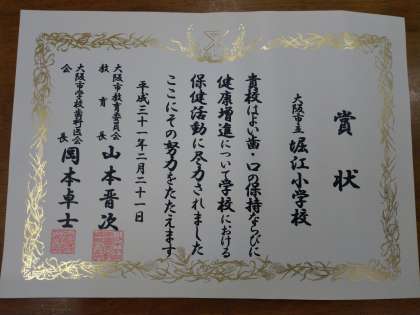 賞状
大阪市立 堀江小学校
貴校はよい歯・口の保持ならびに
健康増進について学校における
保健活動に尽力されました
ここにその努力をたたえます
平成三十一年二月二十一日
大阪市教育委員会
教育長 山本晋次
大阪市学校歯科医会
会長 岡本卓士